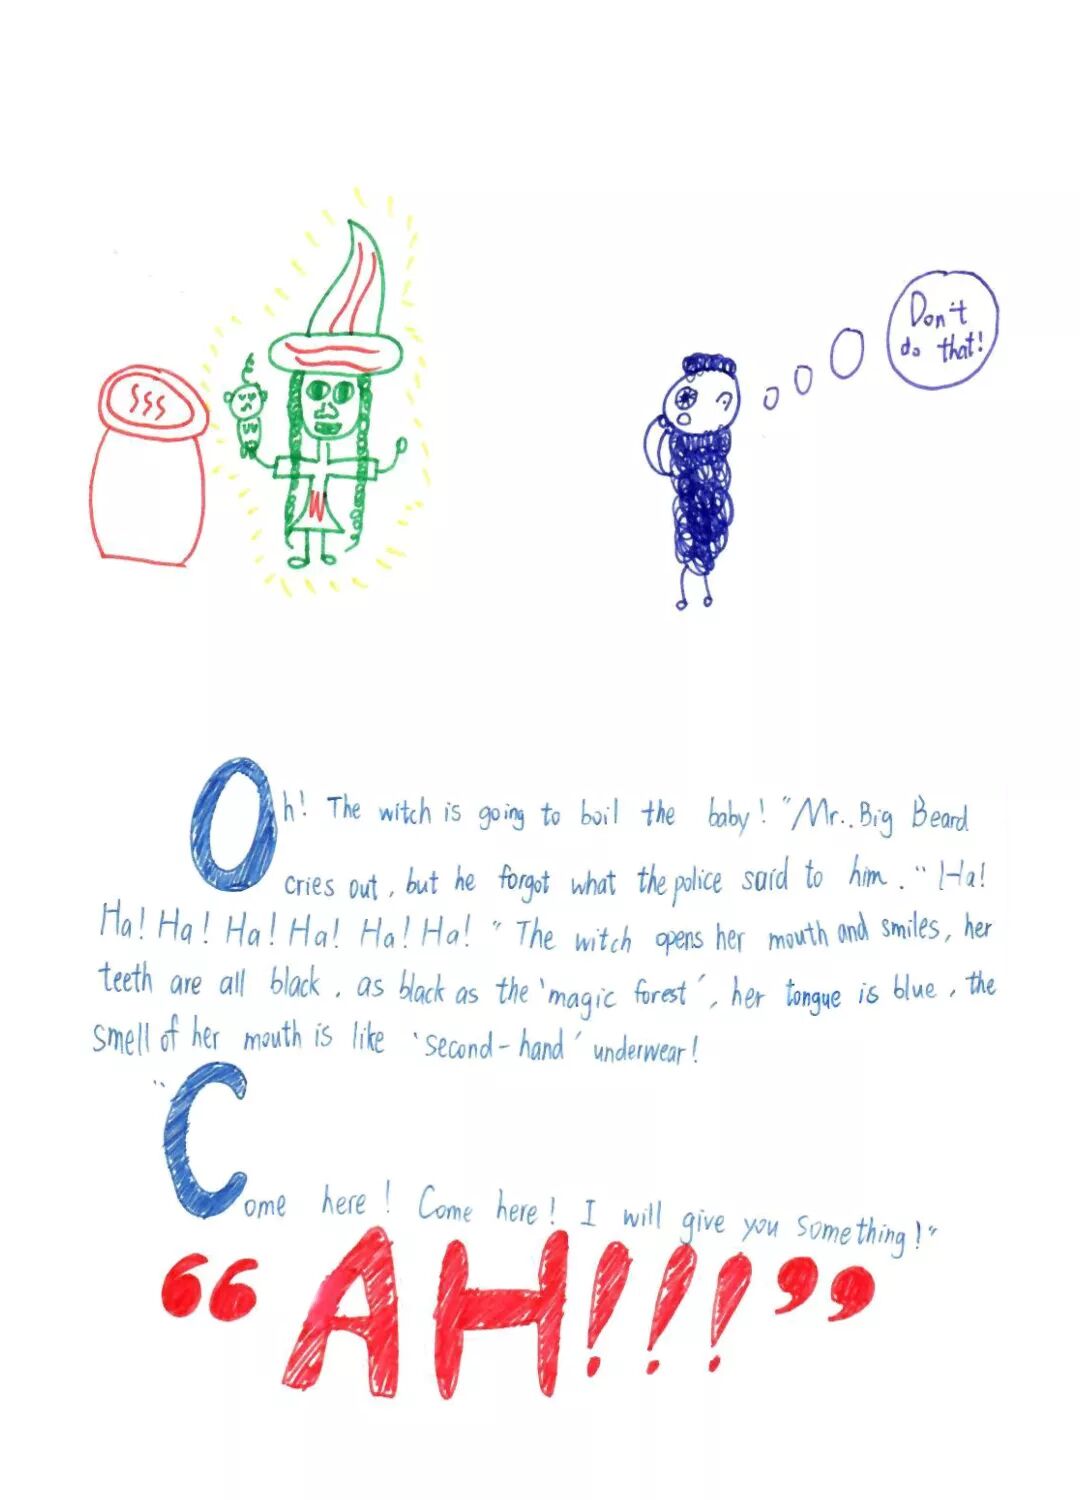 Don't
do that!
Oh! The witch is going to boil the baby! "Mr. Big Beard
cries out, but he forgot what the police said to him. "Ha!
Ha! Ha! Ha! Ha! Ha! Ha! " The witch opens her mouth and smiles, her
teeth are all black, as black as the 'magic forest', her tongue is blue, the
smell of her mouth is like 'second-hand' underwear!
"Come here! Come here! I will give you something!"
"AH!!!"